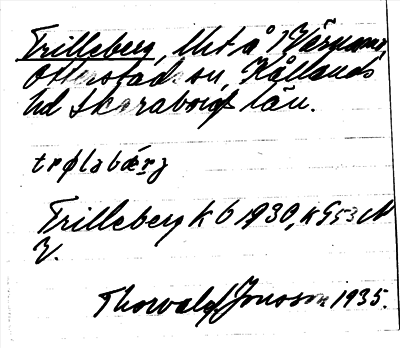 Trilleberg, lht å Värpanäs,
Otterstads sn, Kållands
hd Skaraborgs län.
trøləbærj
Trilleberg k 6 1930, k G53 N
V.
Thorvald Jonsson 1935.